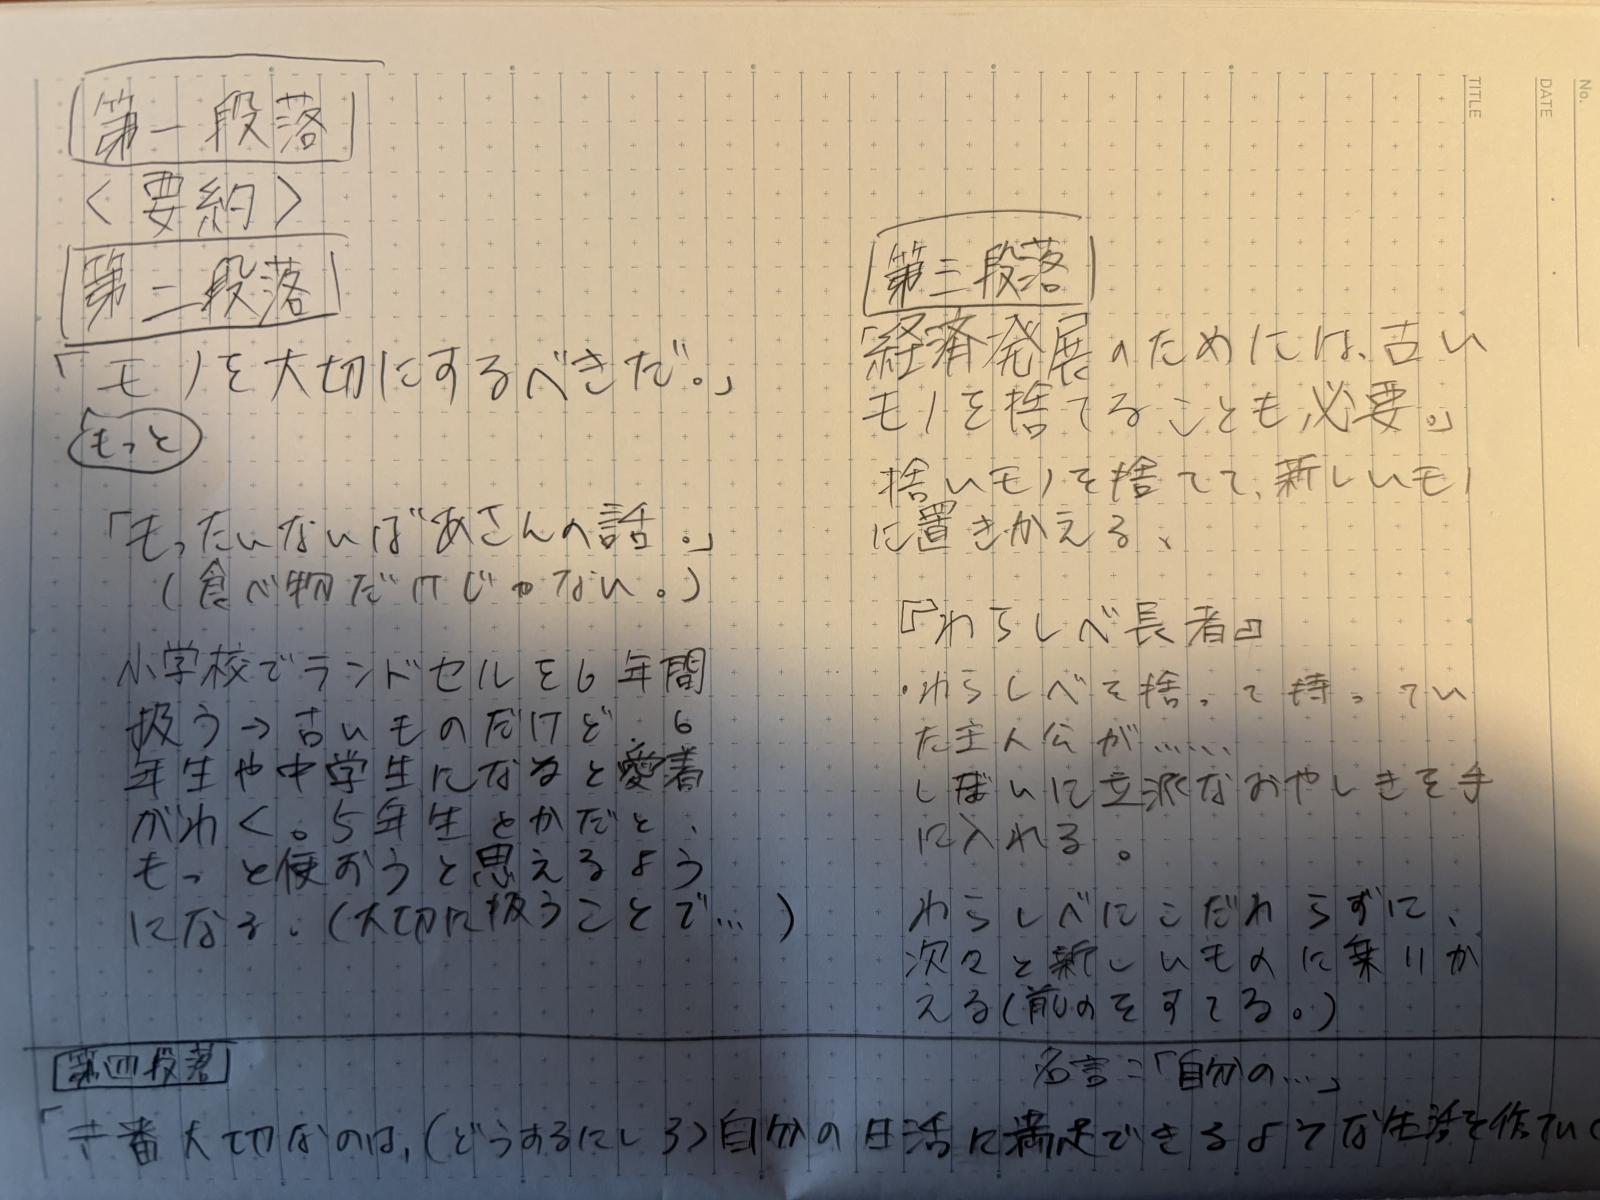 No.
DATE
TITLE
第一段落
〈要約〉
第二段落
「モノを大切にするべきだ。」
もっと
「もったいないばあさんの話。」
(食べ物だけじゃない。)
小学校でランドセルを6年間
扱う→古いものだけど、6
年生や中学生になると愛着
がわく。5年生とかだと、
もっと使おうと思えるよう
になる。(大切に扱うことで…)
第三段落
「経済発展のためには、古い
モノを捨てることも必要。」
捨いモノを捨てて、新しいモノ
に置きかえる、
『わらしべ長者』
・わらしべを捨って持ってい
た主人公が……
しまいに立派なおやしきを手
に入れる。
わらしべにこだわらずに、
次々と新しいものに乗りか
える(前のをすてる。)
第四段落
名言:「自分の…」
「一番大切なのは、(どうするにしろ)自分の生活に満足できるような生活を作ってい